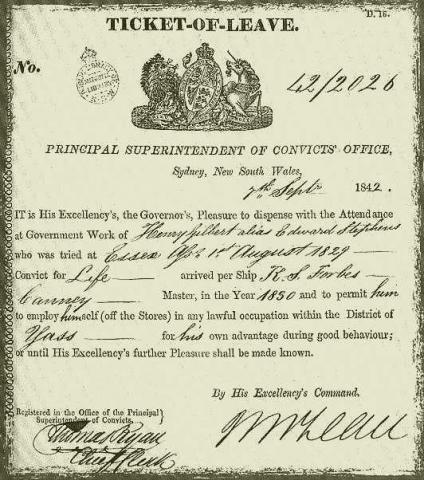 D. 15.
TICKET-OF-LEAVE.
No. 42/2026
PRINCIPAL SUPERINTENDENT OF CONVICTS' OFFICE,
Sydney, New South Wales,
7th Septr 1842.
IT is His Excellency's, the Governor's, Pleasure to dispense with the Attendance
at Government Work of Henry Gilbert alias Edward Stephens
who was tried at Essex 1st August 1829
Convict for Life arrived per Ship K. S. Forbes
Canney Master, in the Year 1830 and to permit him
to employ himself (off the Stores) in any lawful occupation within the District of
Yass for his own advantage during good behaviour;
or until His Excellency's further Pleasure shall be made known.
By His Excellency's Command.
Registered in the Office of the Principal
Superintendent of Convicts.
Thomas Ryan
Chief Clerk